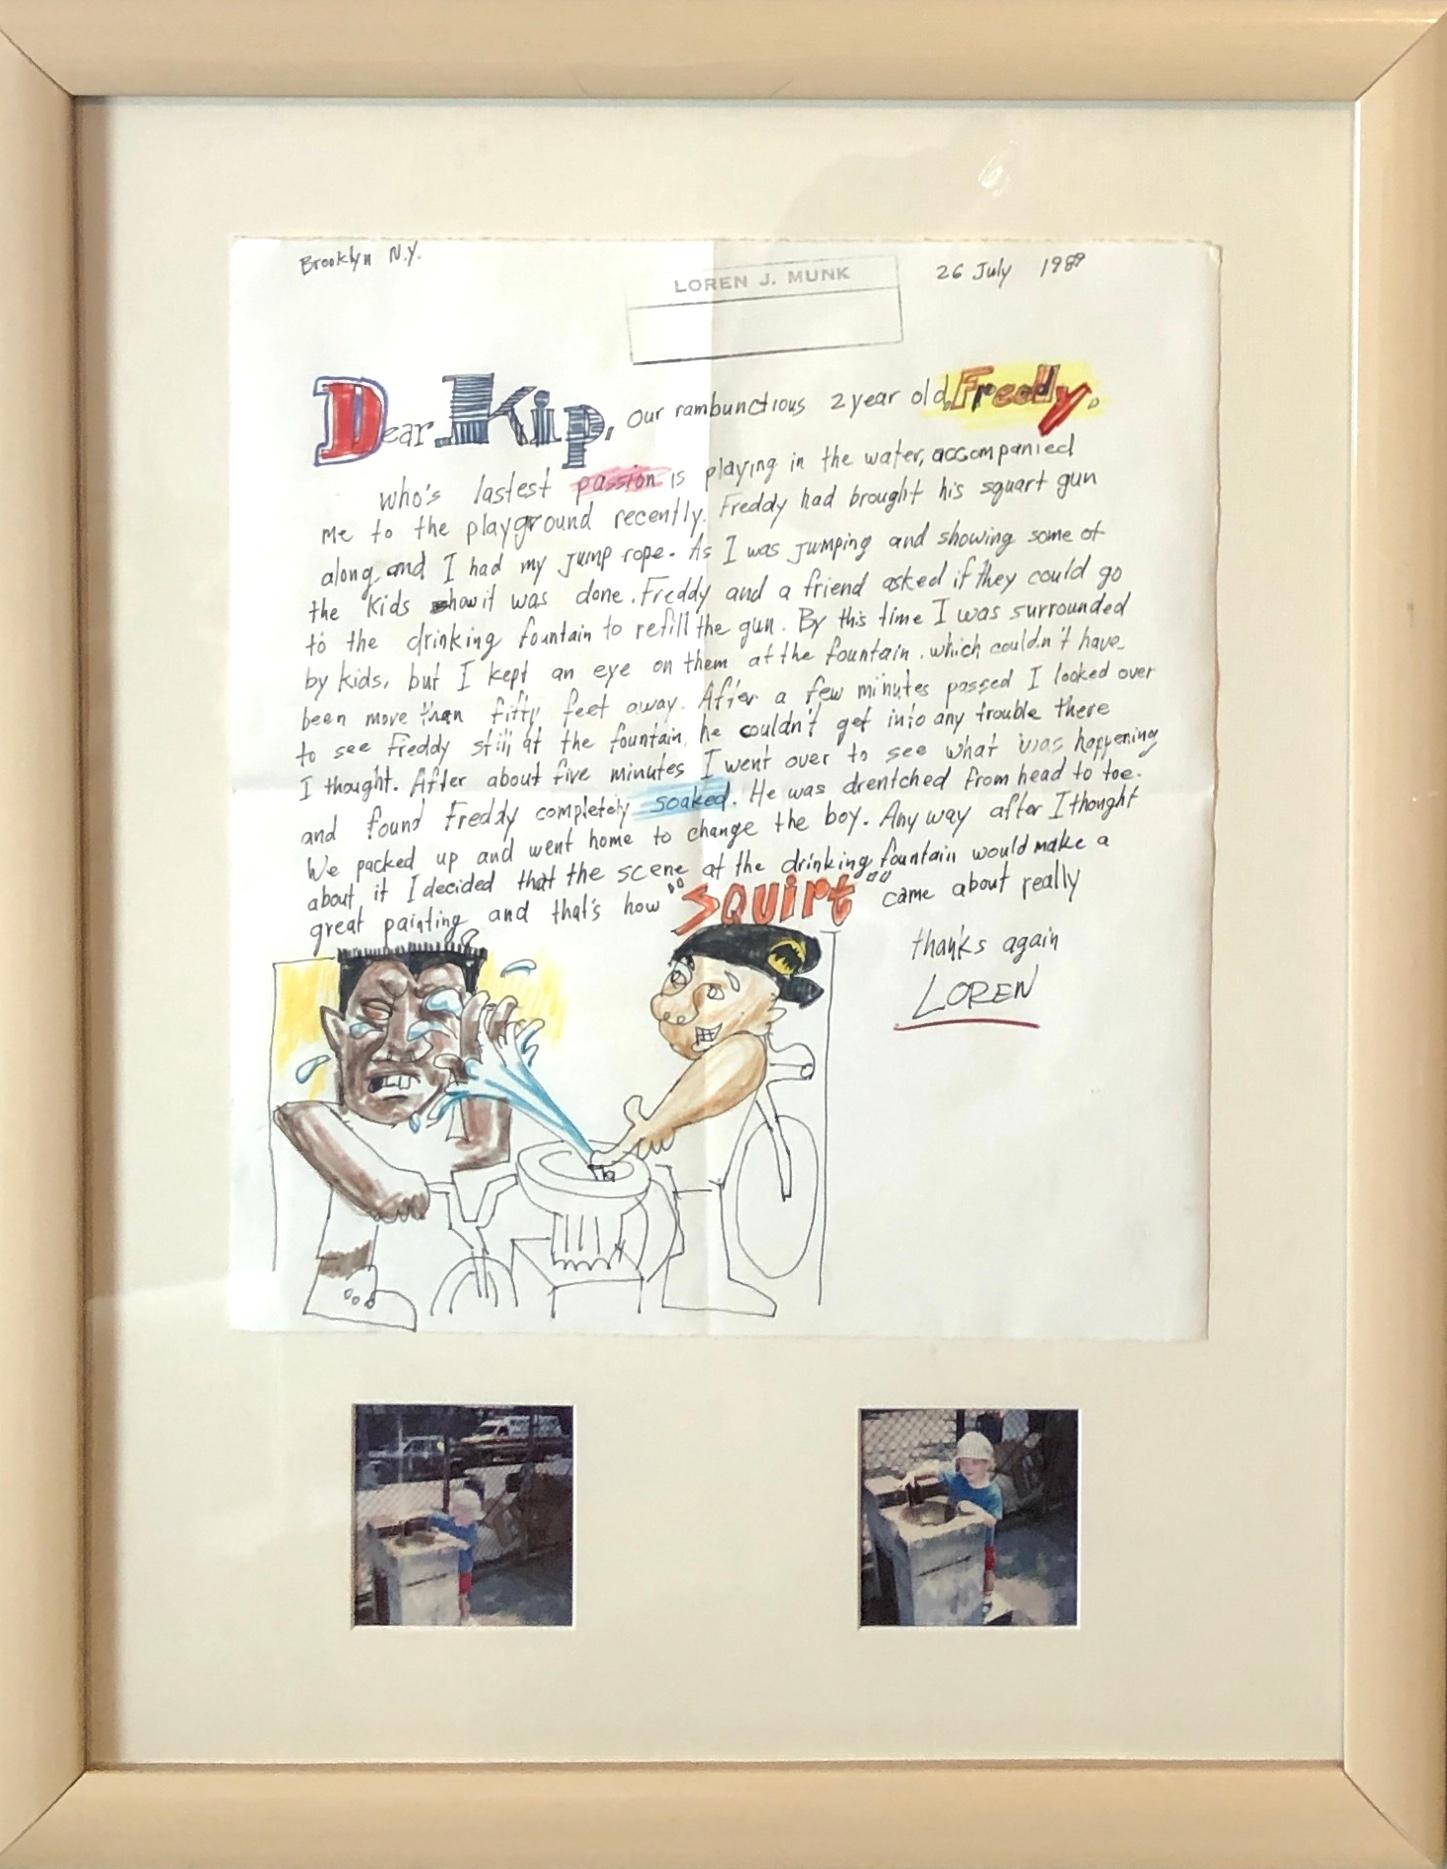 Brooklyn N.Y.
LOREN J. MUNK
26 July 1989
Dear Kip, our rambunctious 2 year old, Freddy,
who's lastest passion is playing in the water, accompanied
me to the playground recently. Freddy had brought his squart gun
along and I had my jump rope. As I was jumping and showing some of
the kids how it was done. Freddy and a friend asked if they could go
to the drinking fountain to refill the gun. By this time I was surrounded
by kids, but I kept an eye on them at the fountain. which couldn't have
been more than fifty feet away. After a few minutes passed I looked over
to see Freddy still at the fountain, he couldn't get into any trouble there
I thought. After about five minutes I went over to see what was happening
and found Freddy completely soaked. He was drentched from head to toe.
We packed up and went home to change the boy. Any way after I thought
about it I decided that the scene at the drinking fountain would make a
great painting and that's how "SQUirt" came about really
thanks again
LOREN